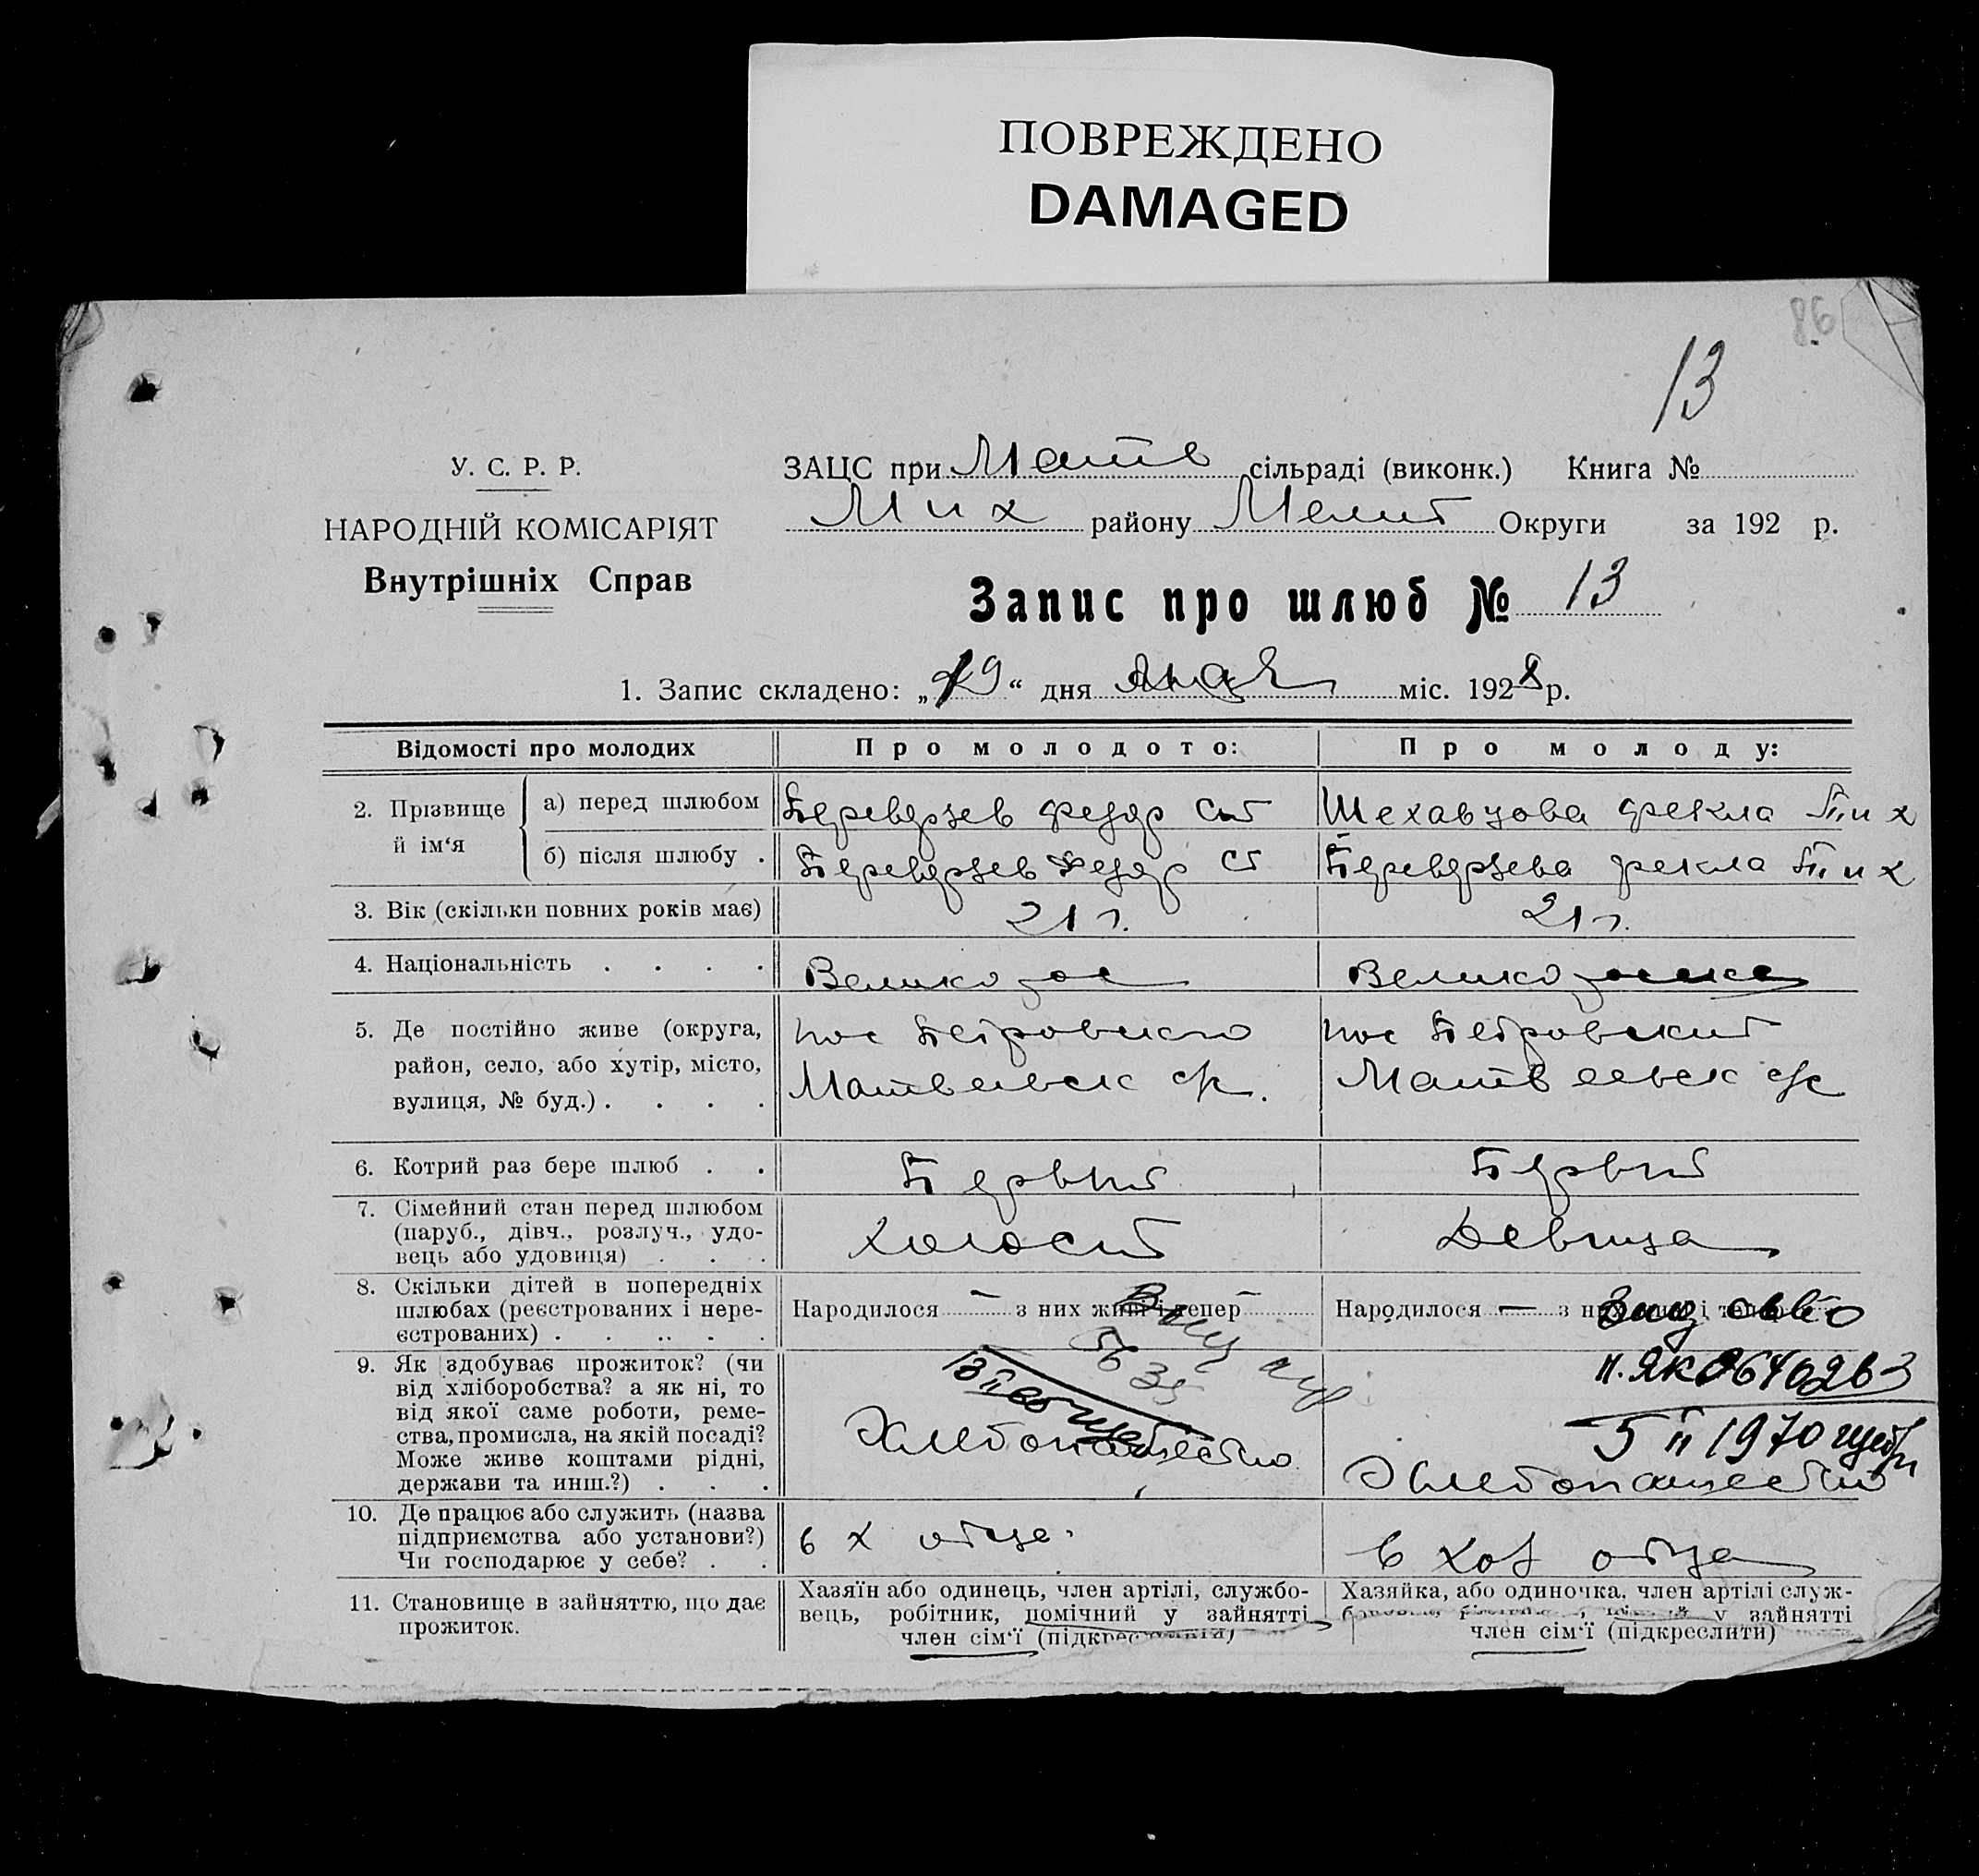 ПОВРЕЖДЕНО
DAMAGED
86
13
У. С. Р. Р.
НАРОДНІЙ КОМІСАРІЯТ
Внутрішніх Справ
ЗАЦС при Матв сільраді (виконк.) Книга №
Мих району Мелит Округи за 192 р.
Запис про шлюб № 13
1. Запис складено: „19“ дня янв міс. 1928 р.
Відомості про молодих
Про молодого:
Про молоду:
2. Прізвище й ім‘я
а) перед шлюбом
Переверзев Федор Ст
Шеховцова Фекла Тих
б) після шлюбу
Переверзев Федор Ст
Переверзева Фекла Тих
3. Вік (скільки повних років має)
21 г.
21 г.
4. Національність
Великорос
Великороска
5. Де постійно живе (округа,
район, село, або хутір, місто,
вулиця, № буд.)
пос Петровского
Матвеевск с/с.
пос Петровский
Матвеевск с/с
6. Котрий раз бере шлюб
Первый
Первый
7. Сімейний стан перед шлюбом
(паруб., дівч., розлуч., удо-
вець або удовиця)
Холост
Девица
8. Скільки дітей в попередніх
шлюбах (реєстрованих і нере-
єстрованих)
Народилося — з них живі і тепер —
Народилося — з них живі і тепер
9. Як здобуває прожиток? (чи
від хліборобства? а як ні, то
від якої саме роботи, реме-
ства, промисла, на якій посаді?
Може живе коштами рідні,
держави та инш.?)
Хлебопашество
5 II 1970
Хлебопашество
10. Де працює або служить (назва
підприємства або установи?)
Чи господарює у себе?
в х отца
в хоз отца
11. Становище в зайняттю, що дає
прожиток.
Хазяїн або одинець, член артілі, службо-
вець, робітник, помічний у зайнятті
член сім‘ї (підкреслити)
Хазяйка, або одиночка, член артілі служ-
у зайнятті
член сім‘ї (підкреслити)